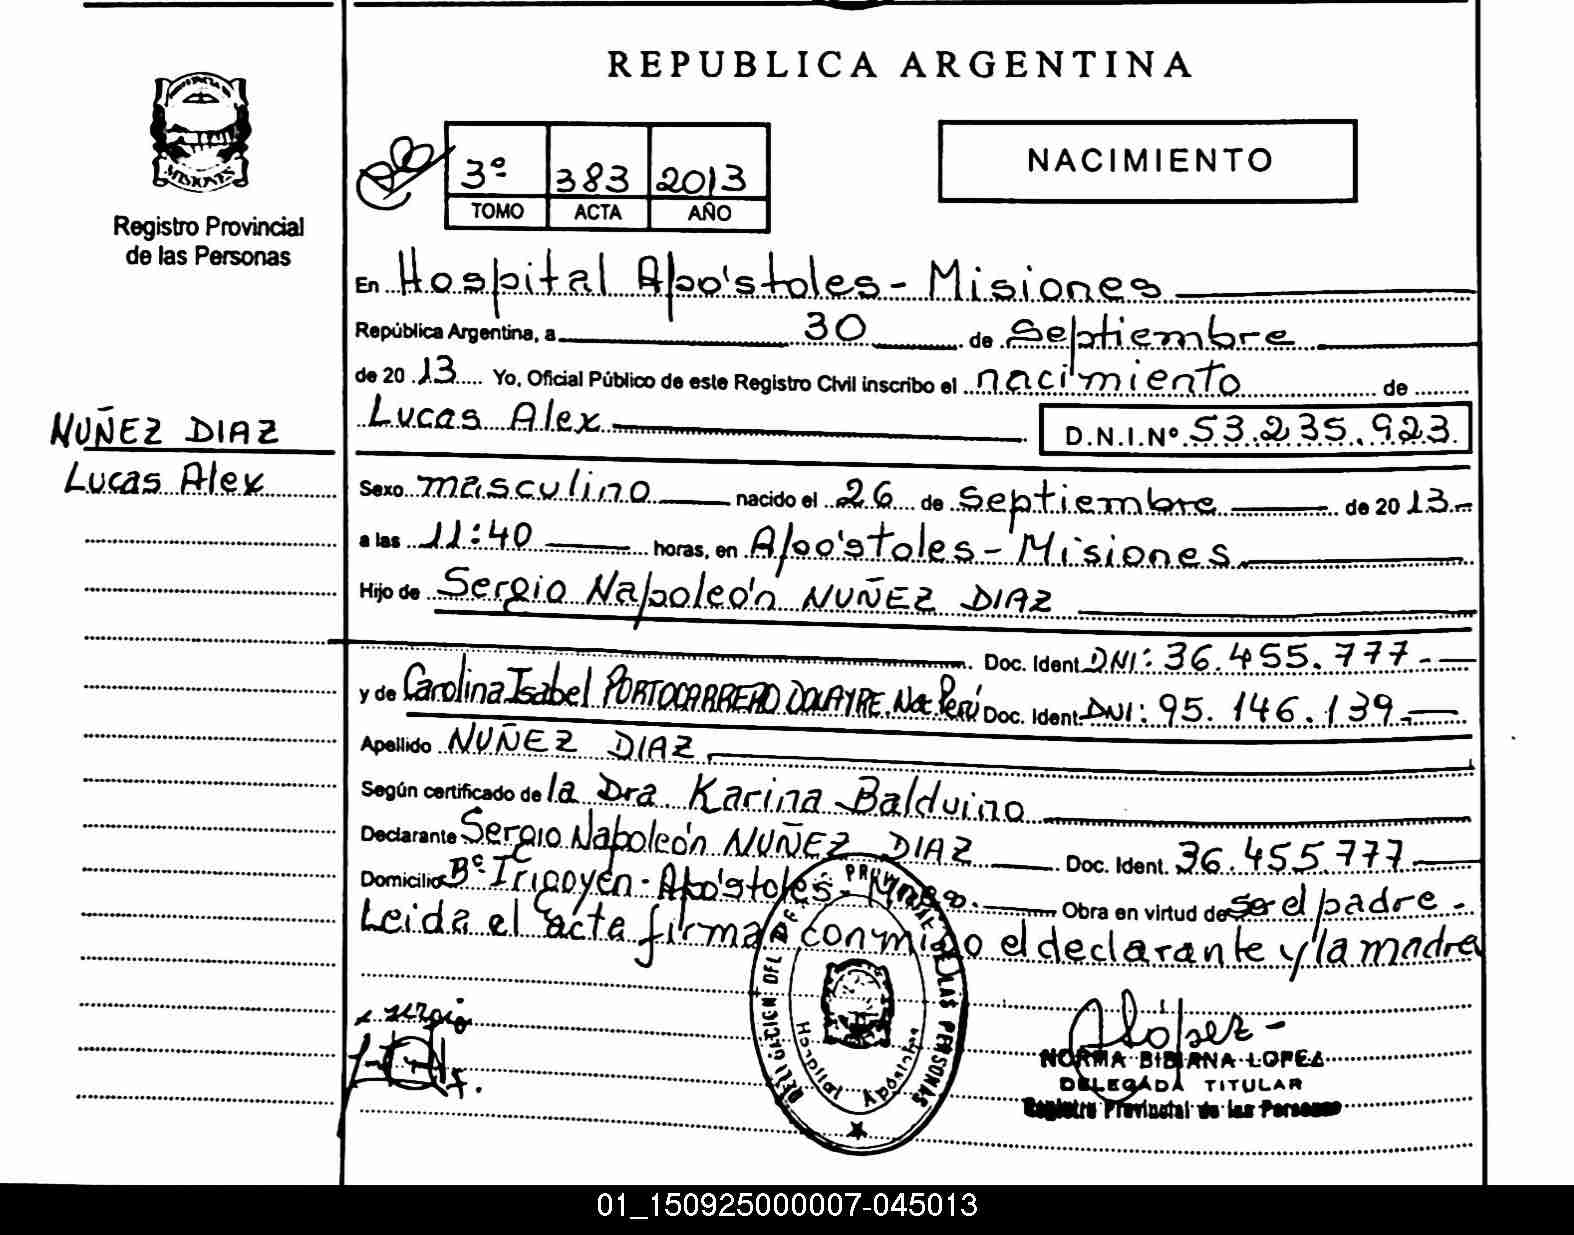 REPUBLICA ARGENTINA
MISIONES
Registro Provincial
de las Personas
3º 383 2013
TOMO ACTA AÑO
NACIMIENTO
En Hospital Apóstoles - Misiones
República Argentina, a 30 de Septiembre
de 2013 Yo, Oficial Público de este Registro Civil inscribo el nacimiento de
Lucas Alex D.N.I.Nº 53.235.923
NUÑEZ DIAZ
Lucas Alex
Sexo masculino nacido el 26 de Septiembre de 2013.-
a las 11:40 horas, en Apóstoles - Misiones
Hijo de Sergio Napoleón NUÑEZ DIAZ
Doc. Ident. DNI: 36.455.777.-
y de Carolina Isabel PORTOCARRERO DOLAYRE. Nac Perú Doc. Ident. DNI: 95.146.139.-
Apellido NUÑEZ DIAZ
Según certificado de la Dra. Karina Balduino
Declarante Sergio Napoleón NUÑEZ DIAZ Doc. Ident. 36.455.777.-
Domicilio Bº Irigoyen - Apóstoles - Obra en virtud de ser el padre -
Leida el acta firma conmigo el declarante y la madre
Sergio
DELEGACION DEL DE LAS PERSONAS
Hospital Apóstoles
ALópez -
NORMA BIBIANA LOPEZ
DELEGADA TITULAR
Registro Provincial de las Personas
01_150925000007-045013